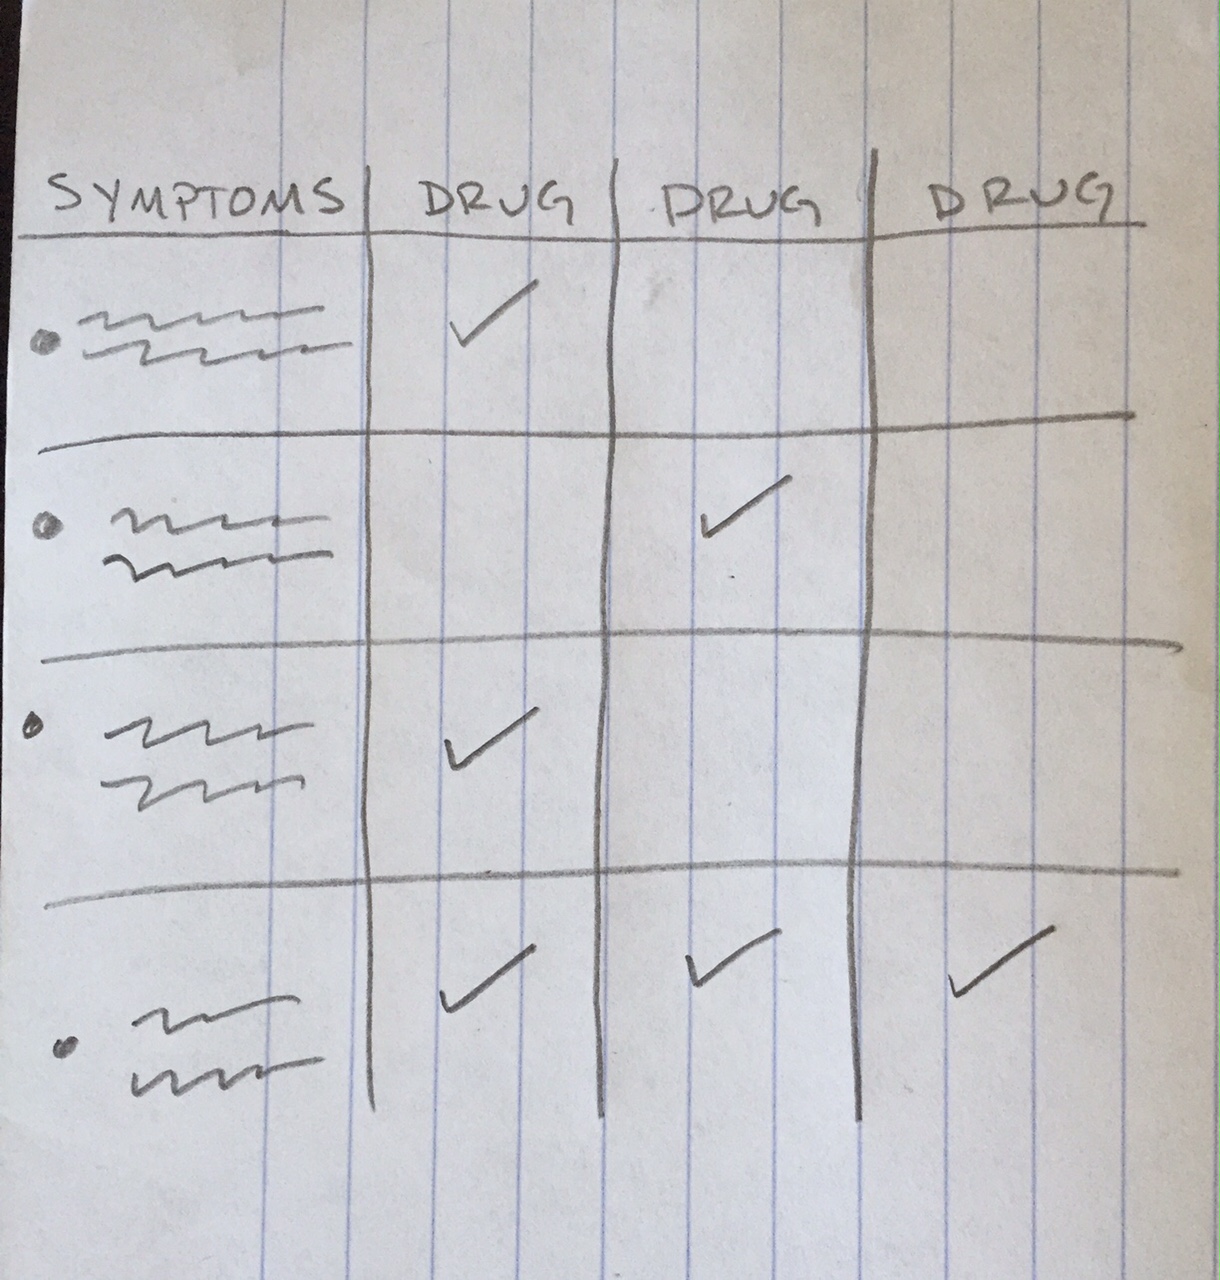 SYMPTOMS DRUG DRUG DRUG